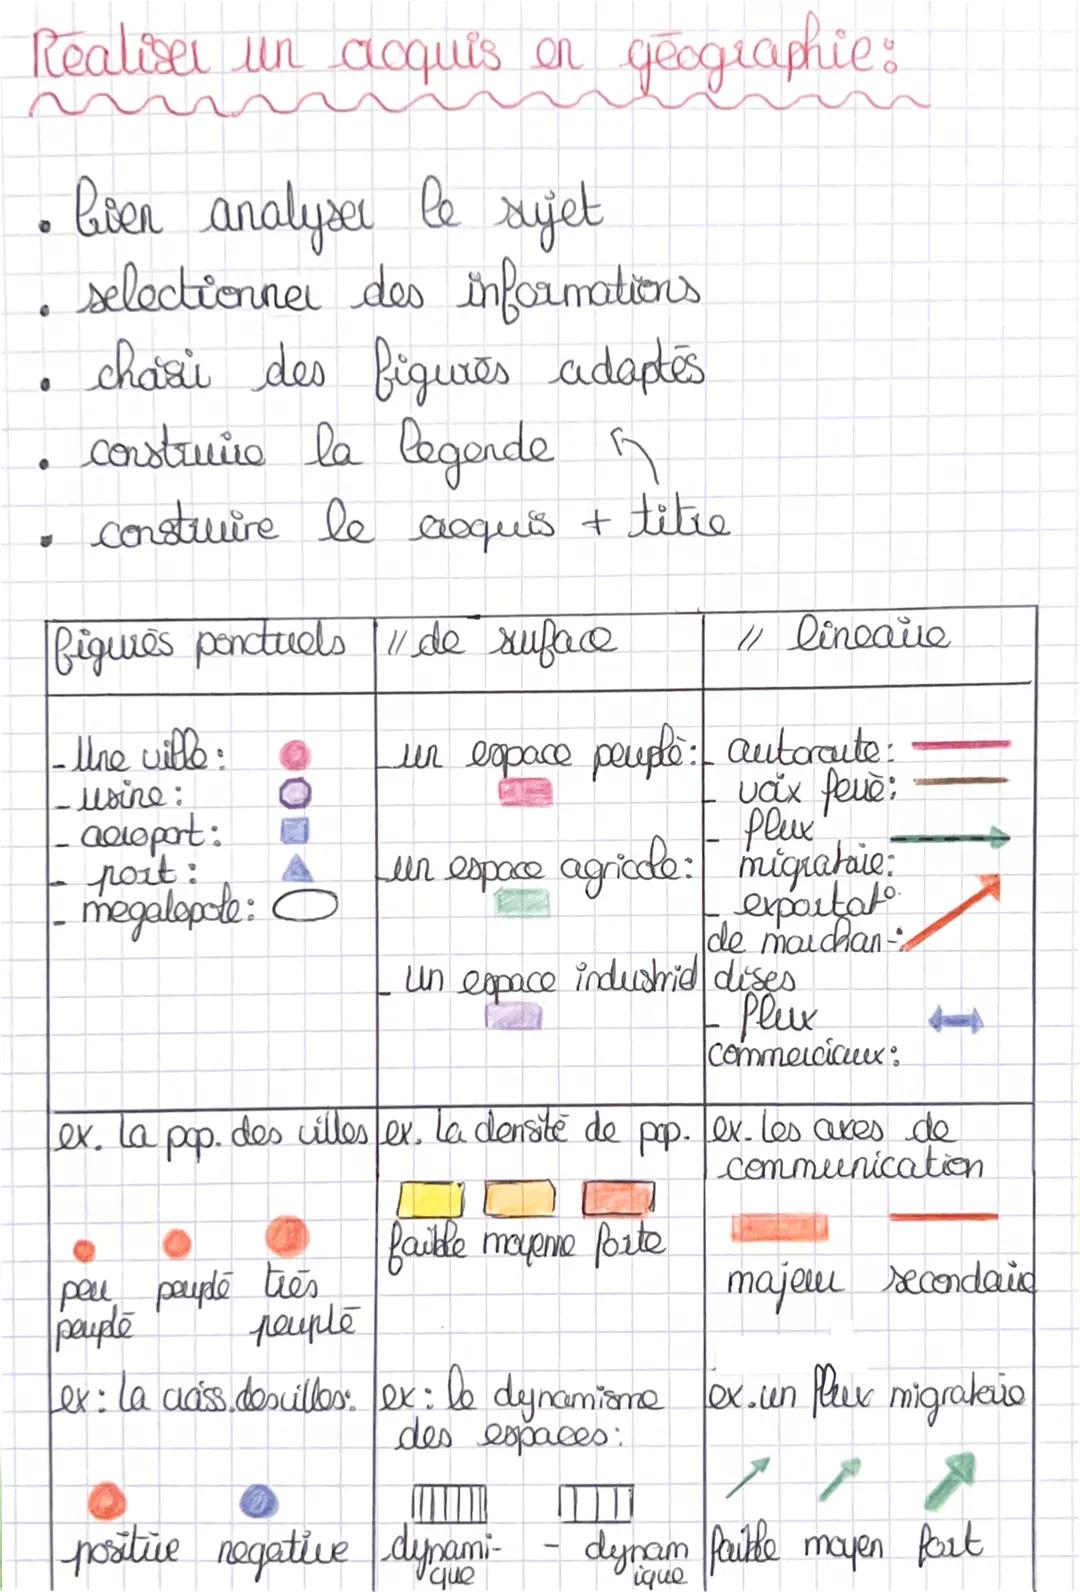 Réaliser un croquis en géographie:
• bien analyser le sujet
• selectionner des informations
• choisi des figurés adaptés
• construire la legende
• construire le croquis + titre
figurés ponctuels
// de surface
// lineaire
- Une ville:
- usine:
- aeroport:
- port:
- megalopole:
- un espace peuplé:
- un espace agricole:
- un espace industriel
- autoroute:
- voix ferré:
- flux
migratoire:
- exportatº
de marchan-:
dises
- flux
commerciaux:
ex. la pop. des villes
peu
peuplé
peuplé
très
peuplé
ex. la densité de pop.
faible moyenne forte
ex. les axes de
communication
majeur secondaire
ex: la croiss. des villes:
positive negative
ex: le dynamisme
des espaces:
dynami-
que
- dynam
ique
ex. un flux migratoire
faible moyen fort